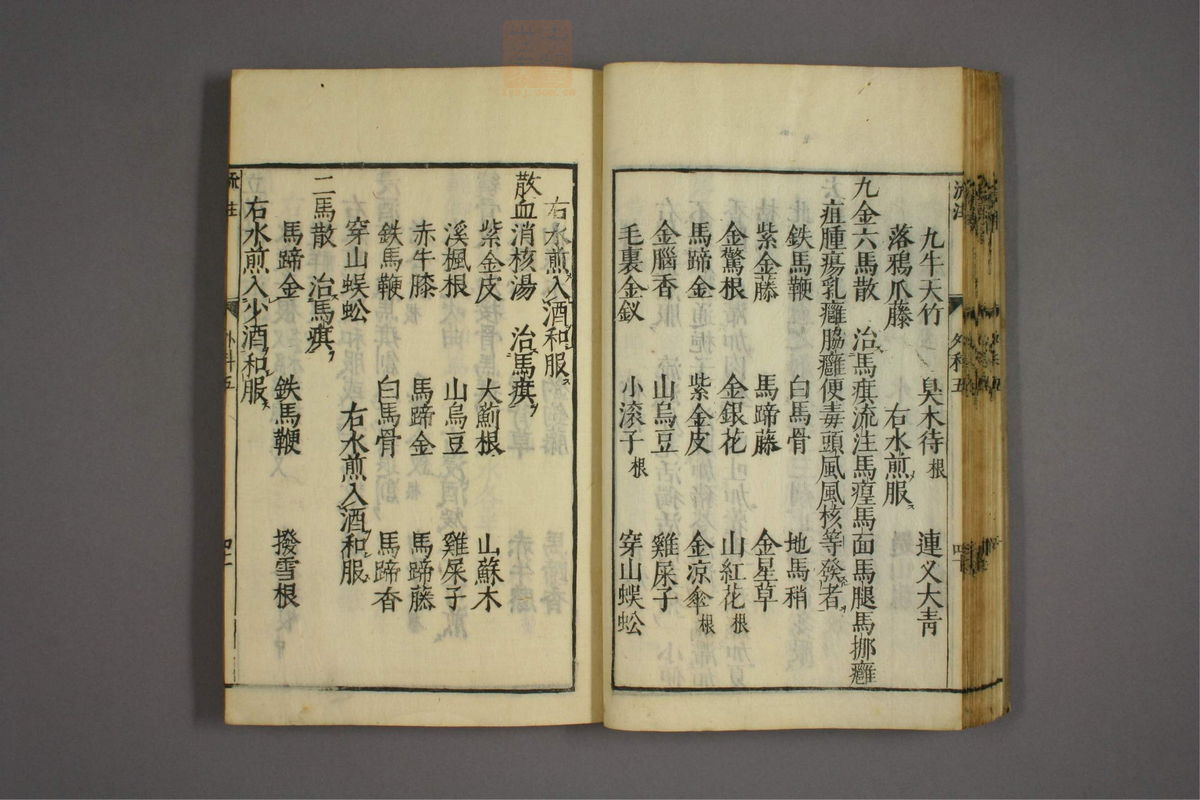 九牛天竹　臭木待根　連义大青
落鴉爪藤　右水煎服
九金六馬散　治馬㾵流注馬㾮馬面馬腿馬挪癰
疽腫瘍乳癰脇癰便毒頭風風核等發者
鉄馬鞭　白馬骨　地馬稍
紫金藤　馬蹄藤　金星草
金驚根　金銀花　山紅花根
馬蹄金　紫金皮　金凉傘根
金腦香　山烏豆　雞屎子
毛裏金釵　小滚子根　穿山蜈蚣
右水煎入酒和服
散血消核湯　治馬㾵
紫金皮　大薊根　山蘇木
溪楓根　山烏豆　雞屎子
赤牛膝　馬蹄金　馬蹄藤
鉄馬鞭　白馬骨　馬蹄香
穿山蜈蚣　右水煎入酒和服
二馬散　治馬㾵
馬蹄金　鉄馬鞭　撥雪根
右水煎入少酒和服
流注　外科五